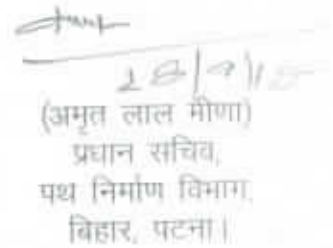 28/9/18
(अमृत लाल मीणा)
प्रधान सचिव,
पथ निर्माण विभाग,
बिहार, पटना।